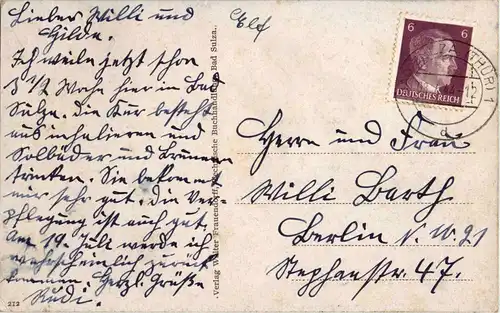 Lieber Willi und
Hilde.
Ich weile jetzt schon
3 1/2 Woche hier in Bad
Sulza. Die Kur besteht
aus inhalieren und
Solbäder und Brunnen
trinken. Sie bekommt
mir sehr gut. Die Ver-
pflegung ist auch gut.
Am 19. Juli werde ich
wahrscheinlich zurück
kommen. Herzl. Grüße
Rudi.
212
Verlag Walter Frauendorf, Buchhandlung, Bad Sulza.
6 6
DEUTSCHES REICH
Herrn und Frau
Willi Barth
Berlin N.W. 21
Stephanstr. 47.